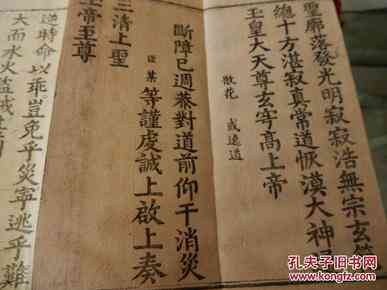 聖廓落發光明寂寂浩無宗玄
總十方湛寂真常道恢漠大神
玉皇大天尊玄穹高上帝
散花 或遶道
斷障已週恭對道前仰干消災
臣某等謹虔誠上啟上奏
三清上聖
上帝至尊
逆時命以乖豈免乎災寧逃乎難
大而水火盜
孔夫子旧书网